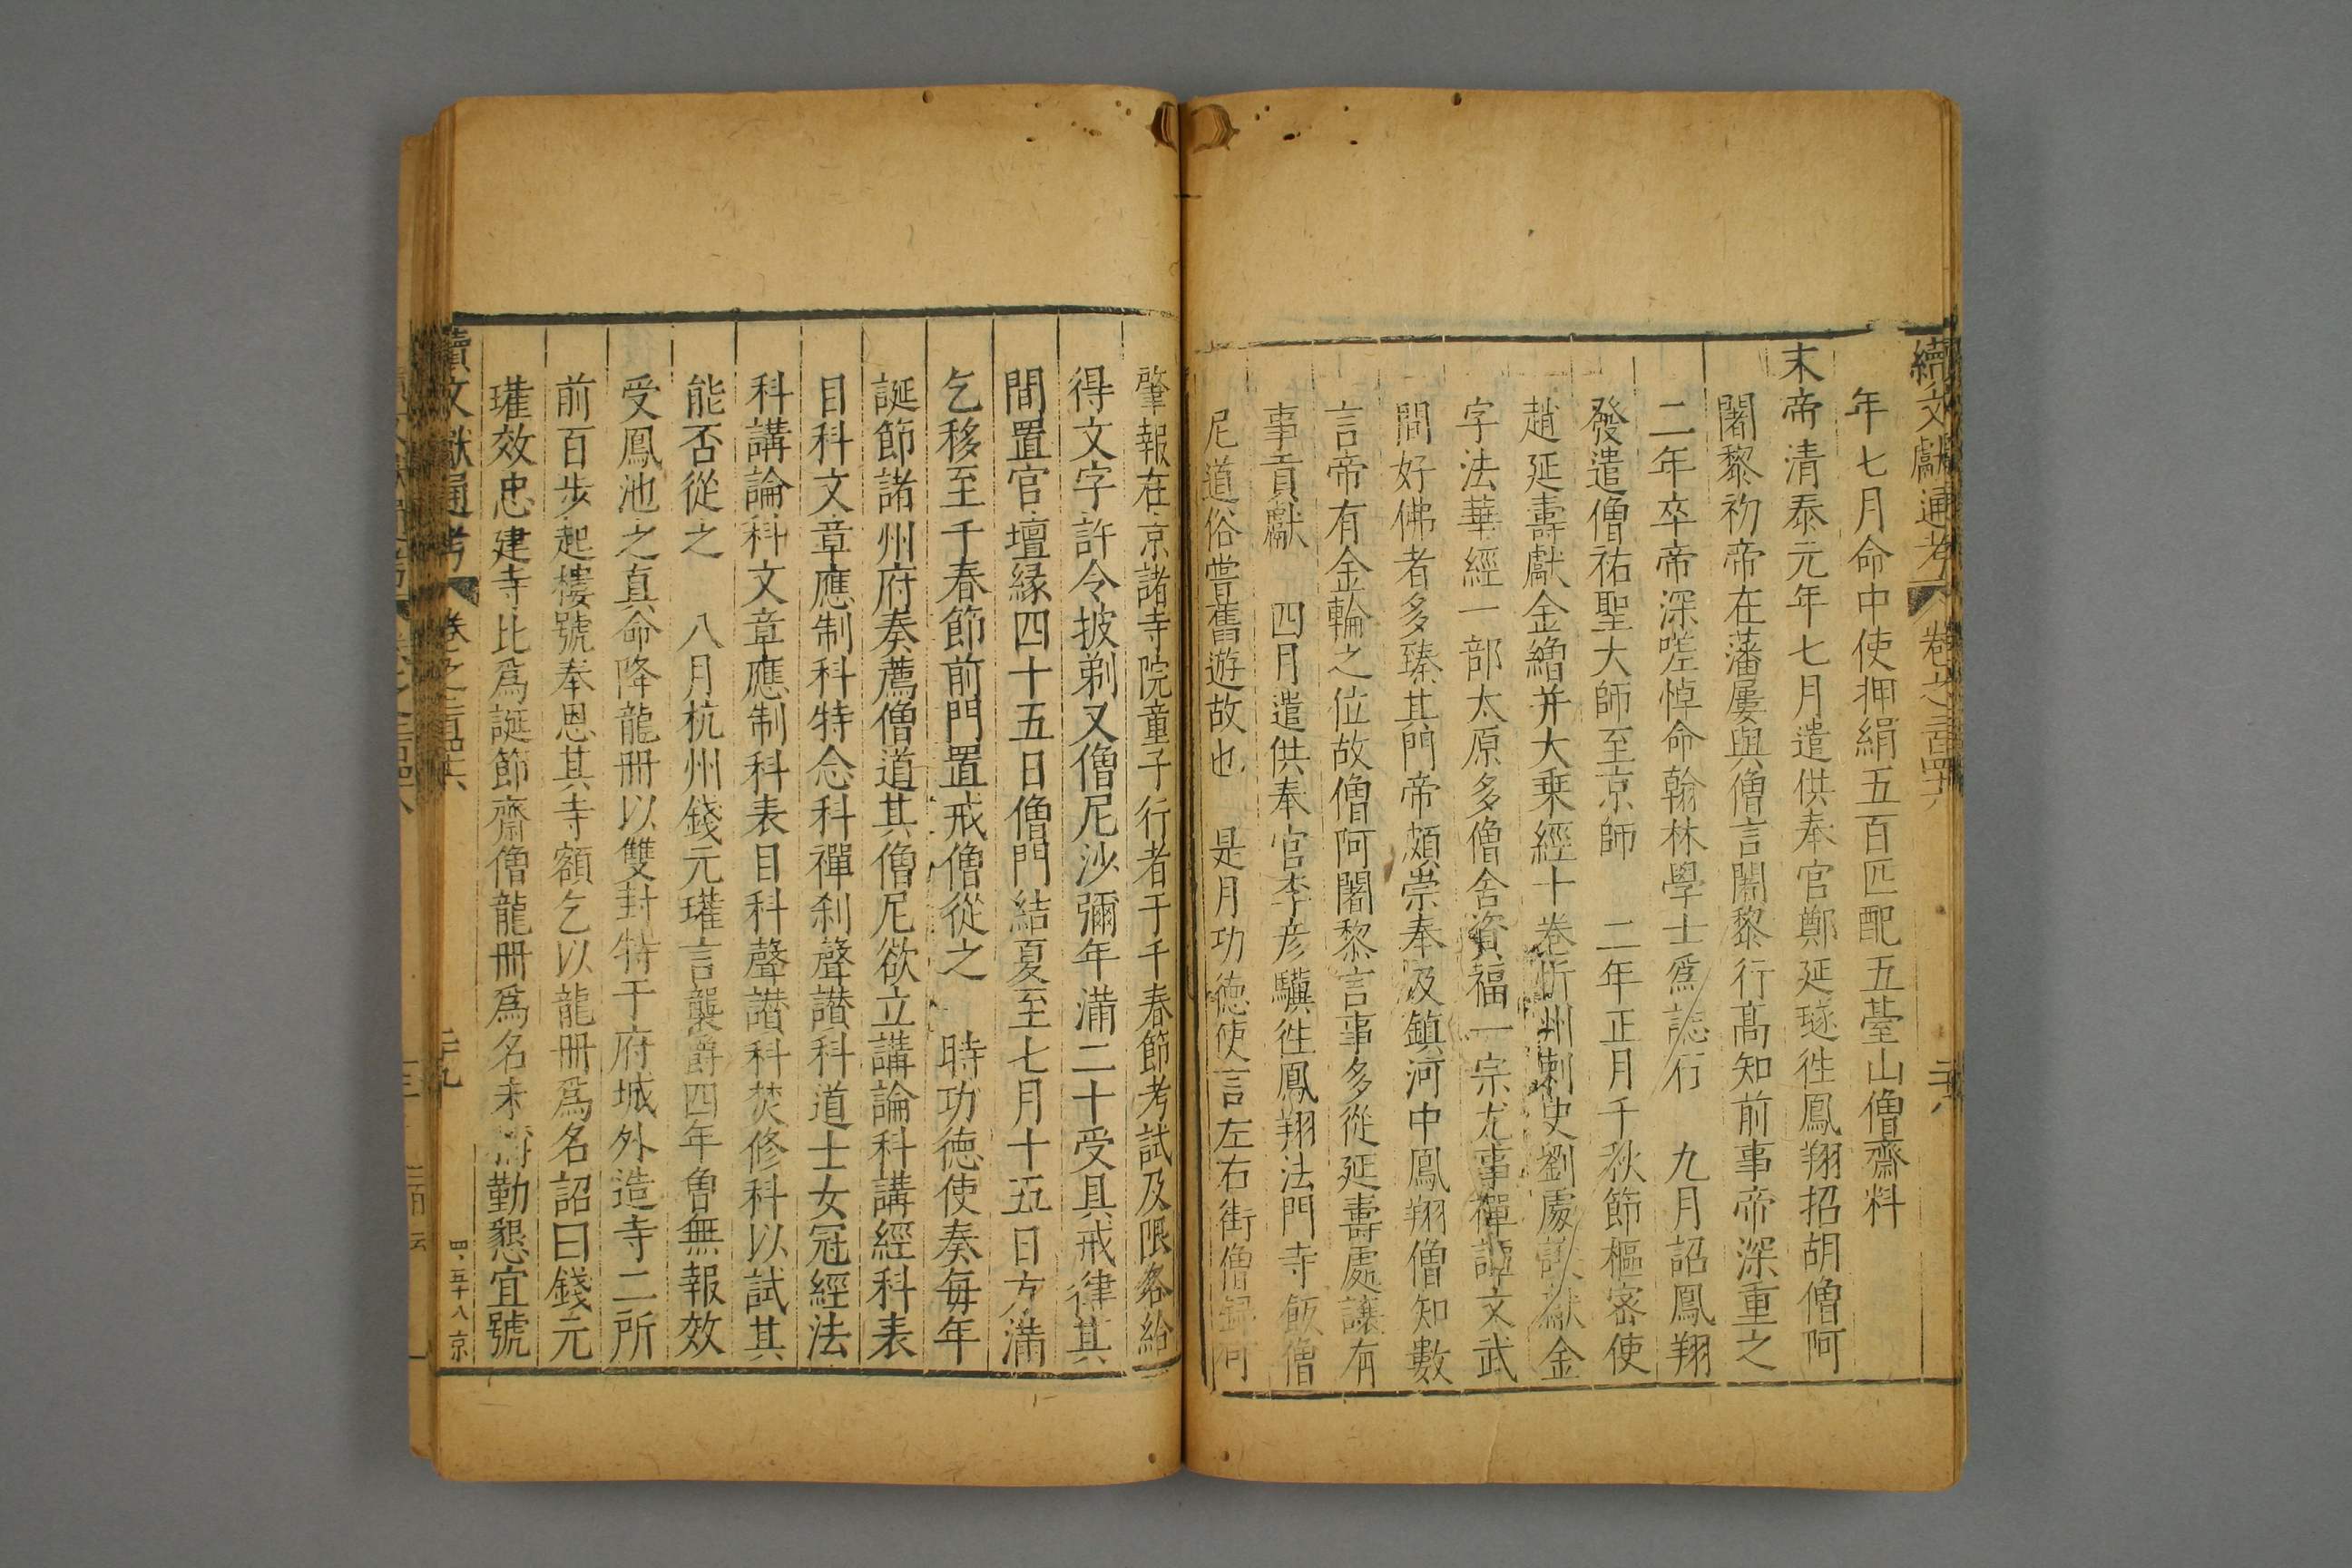 續文獻通考 卷之二百四十八 二十八
年七月命中使押絹五百匹配五臺山僧齋料
末帝清泰元年七月遣供奉官鄭延璲徃鳳翔招胡僧阿
闍黎初帝在藩屢與僧言闍黎行髙知前事帝深重之
二年卒帝深嗟悼命翰林學士爲誌行 九月詔鳳翔
發遣僧祐聖大師至京師 二年正月千秋節樞密使
趙延壽獻金繒并大乗經十卷忻州刺史劉處讓獻金
字法華經一部太原多僧舍資福一宗尤事禪譚文武
間好佛者多臻其門帝頗崇奉及鎮河中鳳翔僧知數
言帝有金輪之位故僧阿闍黎言事多從延壽處讓有
事貢獻 四月遣供奉官李彥驥徃鳳翔法門寺飯僧
尼道俗嘗舊遊故也 是月功德使言左右街僧録可
肇報在京諸寺院童子行者于千春節考試及限畧給
得文字許令披剃又僧尼沙彌年滿二十受具戒律其
間置官壇縁四十五日僧門結夏至七月十五日方滿
乞移至千春節前門置戒僧從之 時功德使奏每年
誕節諸州府奏薦僧道其僧尼欲立講論科講經科表
目科文章應制科特念科禪刹聲讃科道士女冠經法
科講論科文章應制科表目科聲讃科焚修科以試其
能否從之 八月杭州錢元瓘言襲爵四年魯無報效
受鳳池之真命降龍冊以雙封特于府城外造寺二所
前百步起樓號奉恩其寺額乞以龍冊爲名詔曰錢元
瓘效忠建寺比爲誕節齋僧龍冊爲名未勤懇宜號
續文獻通考 卷之二百四十八 二十九 四五十八京